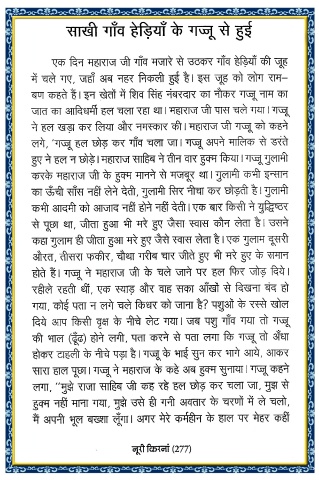 साखी गाँव हेड़ियाँ के गज्जू से हुई
एक दिन महाराज जी गाँव मजारे से उठकर गाँव हेड़ियाँ की जूह
में चले गए, जहाँ अब नहर निकली हुई है। इस जूह को लोग राम–
बण कहते हैं। इन खेतों में शिव सिंह नंबरदार का नौकर गज्जू नाम का
जात का आदिधर्मी हल चला रहा था। महाराज जी पास चले गया। गज्जू
ने हल खड़ा कर लिया और नगस्कार की। महाराज जी गज्जू को कहने
लगे, ‘गज्जू हल छोड़ कर गाँव चला जा। गज्जू अपने मालिक से डरते
हुए ने हल न छोड़े। महाराज साहिब ने तीन वार हुक्म किया। गज्जू गुलामी
करके महाराज जी के हुक्म मानने से मजबूर था। गुलामी कभी इन्सान
का ऊँची साँस नहीं लेने देती, गुलामी सिर नीचा कर छोड़ती है। गुलामी
कभी आदमी को आजाद नहीं होने नहीं देती। एक बार किसी ने युद्धिष्ठर
से पूछा था, जीता हुआ भी मरे हुए जैसा स्वास कौन लेता है। उसने
कहा गुलाम ही जीता हुआ मरे हुए जैसे स्वास लेता है। एक गुलाम दूसरी
औरत, तीसरा फकीर, चौथा गरीब चार जीते हुए भी मरे हुए के समान
होते हैं। गज्जू ने महाराज जी के चले जाने पर हल फिर जोड़ दिये।
रहीले रहती थीं, एक स्याड़ और वाह सका आँखों से दिखना बंद हो
गया, कोई पता न लगे चले किधर को जाना है? पशुओं के रस्से खोल
दिये आप किसी वृक्ष के नीचे लेट गया। जब पशु गाँव गया तो गज्जू
की भाल (ढूँढ) होने लगी, पता करने से पता लगा कि गज्जू तो अँधा
होकर टाहली के नीचे पड़ा है। गज्जू के भाई सुन कर भागे आये, आकर
सारा हाल पूछा। गज्जू ने महाराज के कहे अब हुक्म सुनाया। गज्जू कहने
लगा, “मुझे राजा साहिब जी कह रहे हल छोड़ कर चला जा, मुझ से
हुक्म नहीं माना गया, मुझे उसे ही गनी अवतार के चरणों में ले चलो,
मैं अपनी भूल बख्शा लूँगा। अगर मेरे कर्महीन के हाल पर मेहर कहीं
नूरी किरनां (277)